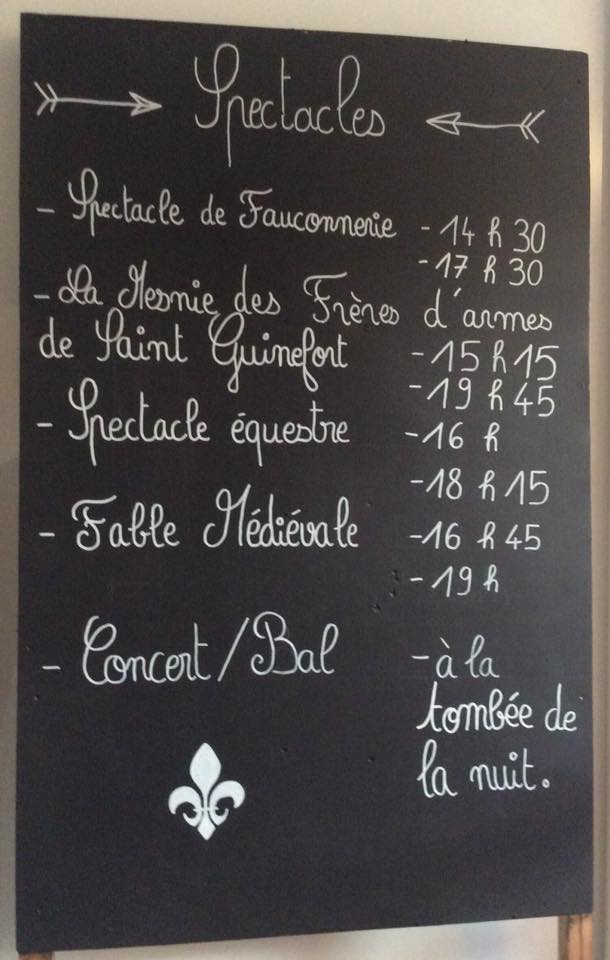 Spectacles
- Spectacle de Fauconnerie - 14 h 30
- 17 h 30
- La Mesnie des Frères d'armes
de Saint Guinefort - 15 h 15
- 19 h 45
- Spectacle équestre - 16 h
- 18 h 15
- Fable Médiévale - 16 h 45
- 19 h
- Concert / Bal - à la
tombée de
la nuit.